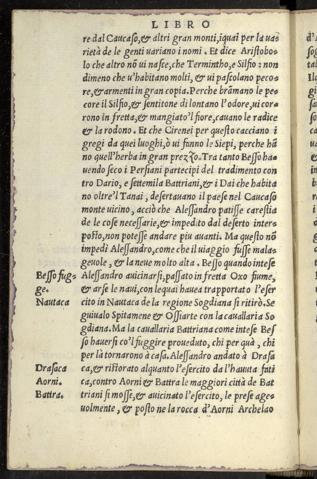 LIBRO
re dal Caucaso, & altri gran monti, iquai per la ua⸗
rietà de le genti uariano i nomi. Et dice Aristobo⸗
lo che altro nõ ui nasce, che Termintho, e Silfio: non
dimeno che u'habitano molti, & ui pascolano peco⸗
re, & armenti in gran copia. Perche brãmano le pe⸗
core il Silfio, & sentitone di lontano l'odore, ui cor⸗
rono in fretta, & mangiato'l fiore, cauano le radice
& la rodono. Et che Cirenei per questo cacciano i
gregi da quei luoghi, ò ui fanno le Siepi, perche hã
no quell'herba in gran prezzo. Tra tanto Besso ha⸗
uendo seco i Persiani partecipi del tradimento con
tro Dario, e settemila Battriani, & i Dai che habita
no oltre'l Tanai, desertauano il paese nel Caucaso
monte uicino, acciò che Alessandro patisse carestia
de le cose necessarie, & impedito dal deserto inter⸗
posto, non potesse andare piu auanti. Ma questo nõ
impedì Alessandro, come che il uiaggio fusse mala⸗
geuole, & la neue molto alta. Besso quando intese
Besso fug⸗
ge.
Alessandro auicinarsi, passato in fretta Oxo fiume,
& arse le naui, con lequai haueа trapportato l'eser
Nautaca
cito in Nautaca de la regione Sogdiana si ritirò. Se
guiualo Spitamene & Ossiarte con la cauallaria So⸗
gdiana. Ma la cauallaria Battriana come intese Bes⸗
so hauersi co'l fuggire proueduto, chi per quà, chi
per là tornarono à casa. Alessandro andato à Drasa
Drasaca
ca, & ristorato alquanto l'esercito da l'hauuta fati
Aorni.
ca, contro Aorni & Battra le maggiori città de Bat
Battra.
triani si mosse, & auicinato l'esercito, le prese age⸗
uolmente, & posto ne la rocca d'Aorni Archelao